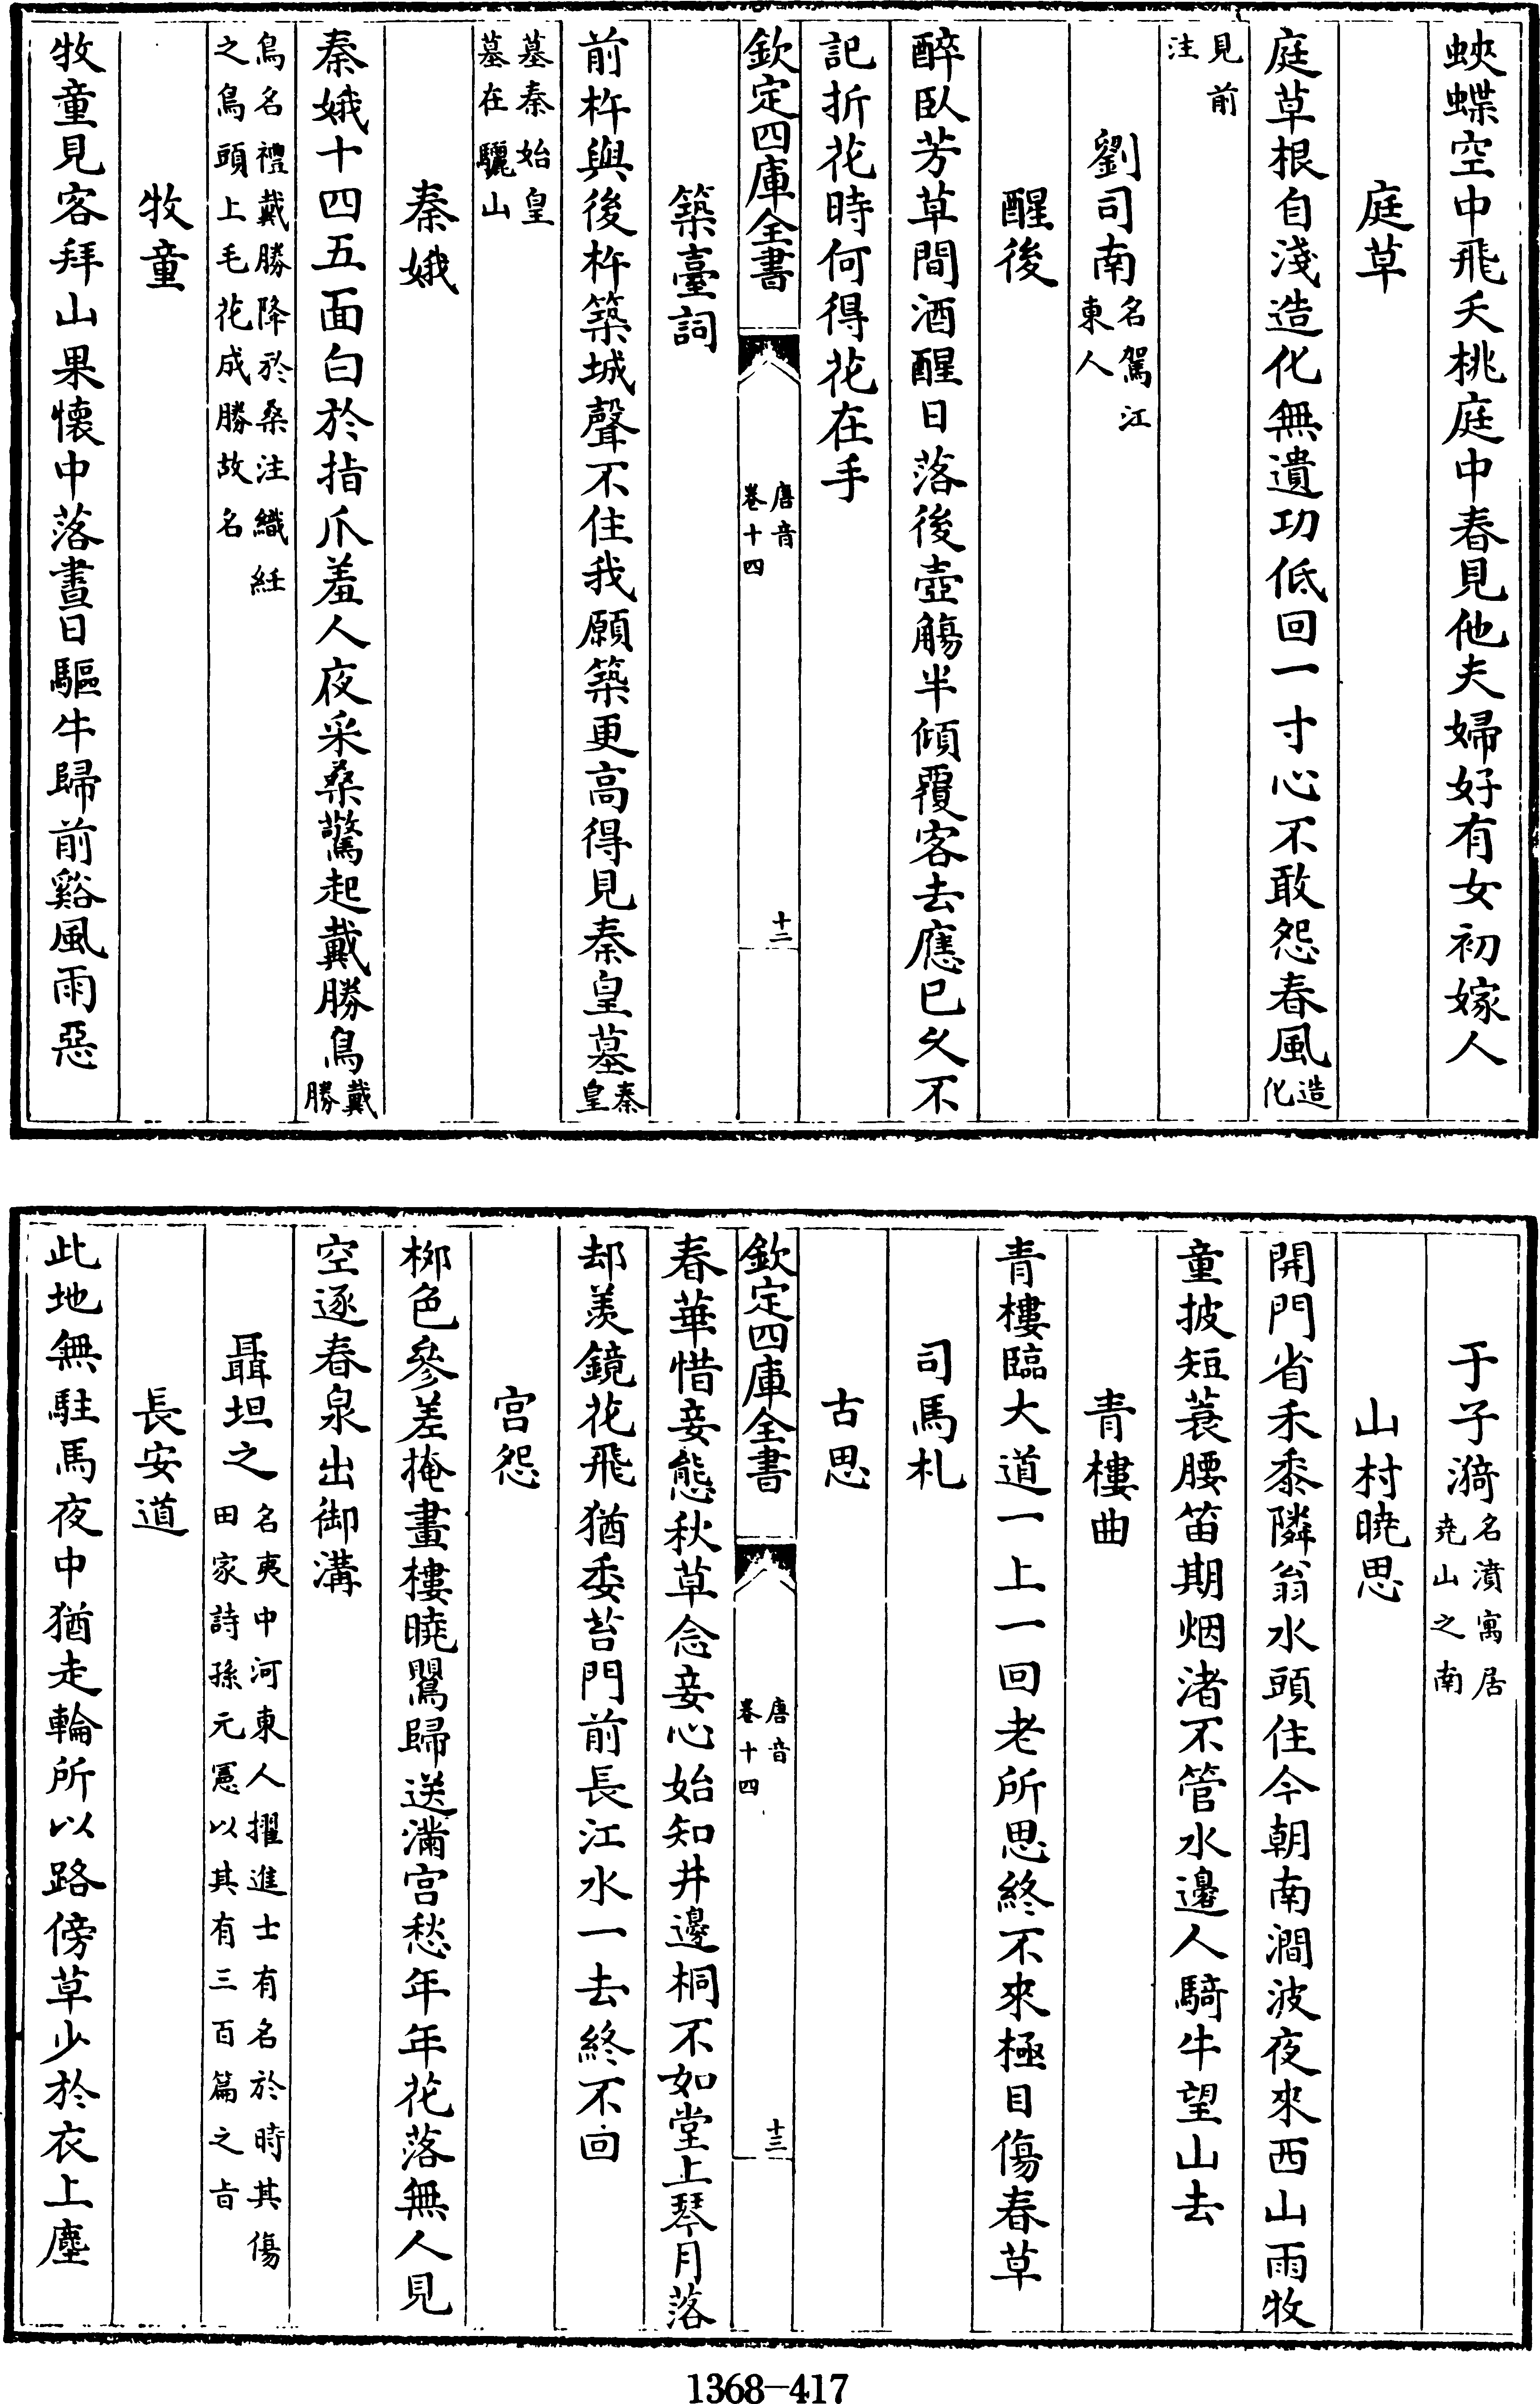 蛺蝶空中飛夭桃庭中春見他夫婦好有女初嫁人
庭草
庭草根自淺造化無遺功低回一寸心不敢怨春風造化
見前注
劉司南名駕江東人
醒後
醉臥芳草間酒醒日落後壺觴半傾覆客去應已久不
記折花時何得花在手
欽定四庫全書
唐音
卷十四
十二
築臺詞
前杵與後杵築城聲不住我願築更高得見秦皇墓秦皇
墓秦始皇
墓在驪山
秦娥
秦娥十四五面白於指爪羞人夜采桑驚起戴勝鳥戴勝
鳥名禮戴勝降於桑注織紝
之鳥頭上毛花成勝故名
牧童
牧童見客拜山果懷中落晝日驅牛歸前谿風雨惡
于子漪名濆寓居堯山之南
山村曉思
開門省禾黍隣翁水頭住今朝南澗波夜來西山雨牧
童披短蓑腰笛期烟渚不管水邊人騎牛望山去
青樓曲
青樓臨大道一上一回老所思終不來極目傷春草
司馬札
古思
欽定四庫全書
唐音
卷十四
十三
春華惜妾態秋草念妾心始知井邊桐不如堂上琴月落
却羡鏡花飛猶委苔門前長江水一去終不回
宫怨
栁色參差掩畫樓曉鸎歸送滿宫愁年年花落無人見
空逐春泉出御溝
聶坦之名夷中河東人擢進士有名於時其傷
田家詩孫元憲以其有三百篇之旨
長安道
此地無駐馬夜中猶走輪所以路傍草少於衣上塵
1368-417